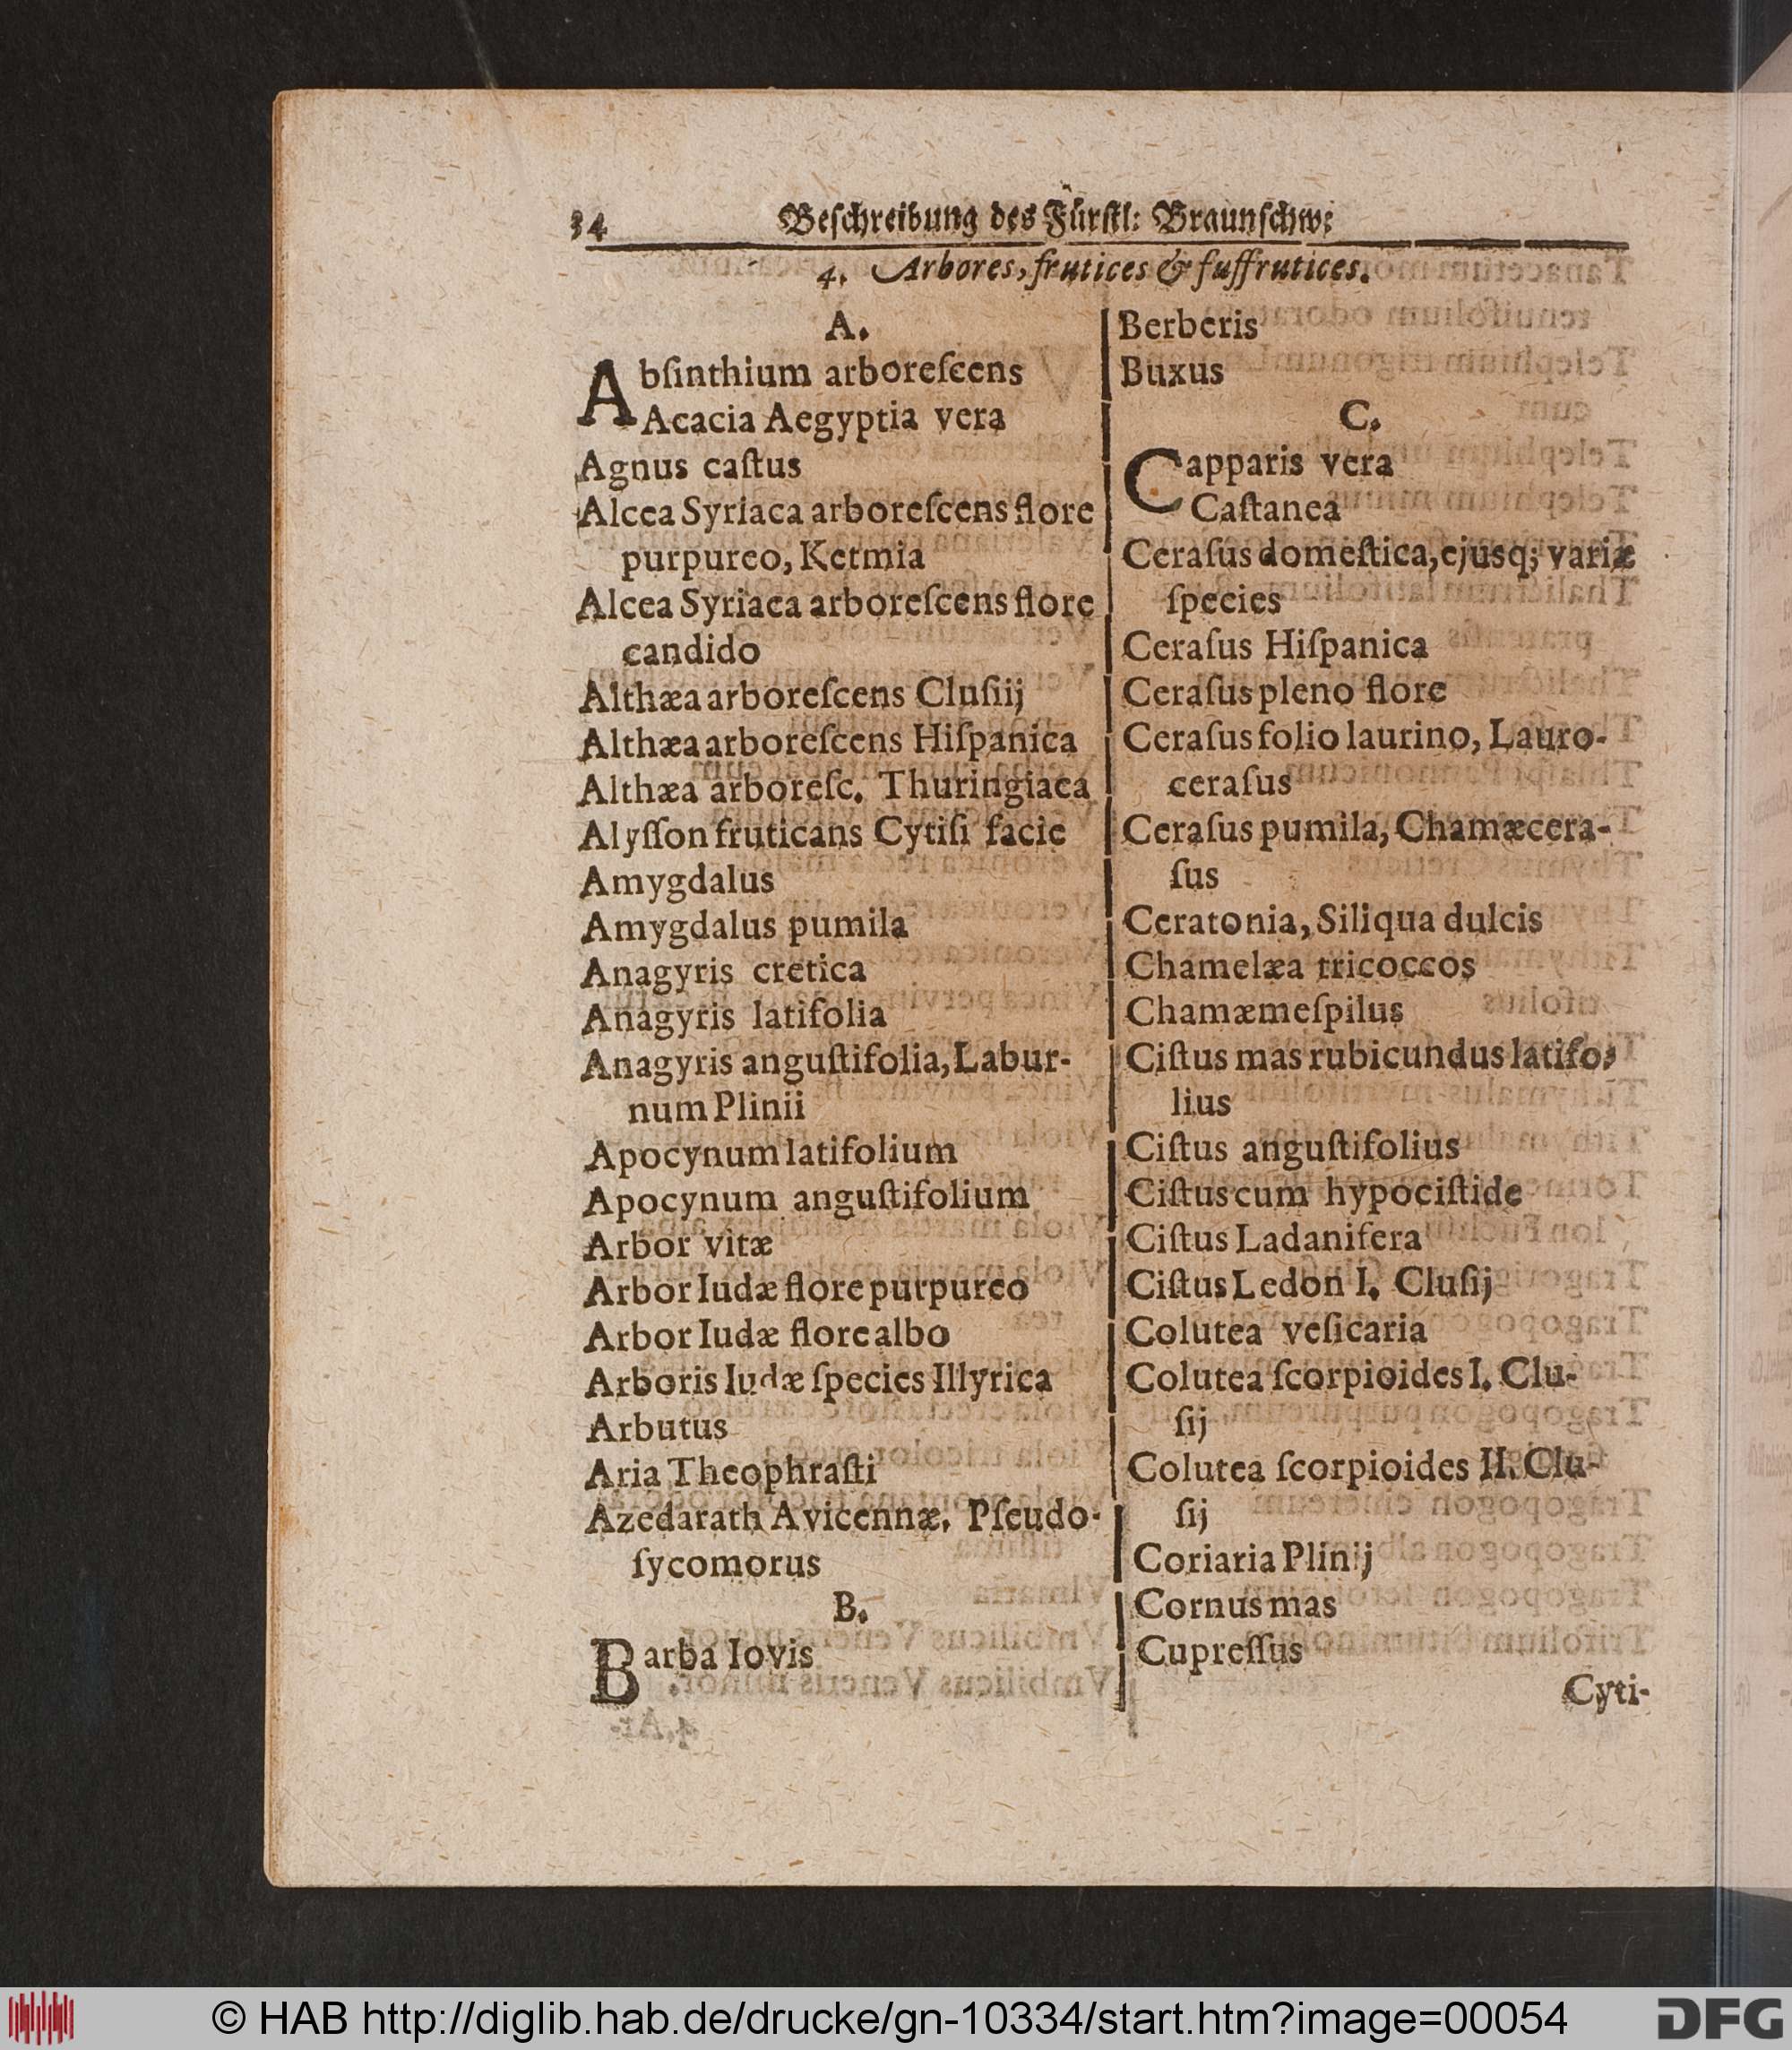 34 Beſchreibung des Fürſtl: Braunſchw:
4. Arbores, frutices & ſuffrutices.
A.
Abſinthium arboreſcens
Acacia Aegyptia vera
Agnus caſtus
Alcea Syriaca arboreſcens flore
purpureo, Ketmia
Alcea Syriaca arboreſcens flore
candido
Althæa arboreſcens Cluſiij
Althæa arboreſcens Hiſpanica
Althæa arboreſc. Thuringiaca
Alyſſon fruticans Cytiſi facie
Amygdalus
Amygdalus pumila
Anagyris cretica
Anagyris latifolia
Anagyris anguſtifolia, Labur-
num Plinii
Apocynum latifolium
Apocynum anguſtifolium
Arbor vitæ
Arbor Iudæ flore purpureo
Arbor Iudæ flore albo
Arboris Iudæ ſpecies Illyrica
Arbutus
Aria Theophraſti
Azedarath Avicennæ. Pſeudo-
ſycomorus
B.
Barba Iovis
Berberis
Buxus
C.
Capparis vera
Caſtanea
Ceraſus domeſtica, ejusq; variæ
ſpecies
Ceraſus Hiſpanica
Ceraſus pleno flore
Ceraſus folio laurino, Lauro-
ceraſus
Ceraſus pumila, Chamæcera-
ſus
Ceratonia, Siliqua dulcis
Chamelæa tricoccos
Chamæmeſpilus
Ciſtus mas rubicundus latifo-
lius
Ciſtus anguſtifolius
Ciſtus cum hypociſtide
Ciſtus Ladanifera
Ciſtus Ledon I. Cluſij
Colutea veſicaria
Colutea ſcorpioides I. Clu-
ſij
Colutea ſcorpioides II. Clu-
ſij
Coriaria Plinij
Cornus mas
Cupreſſus
Cyti-
© HAB http://diglib.hab.de/drucke/gn-10334/start.htm?image=00054
DFG